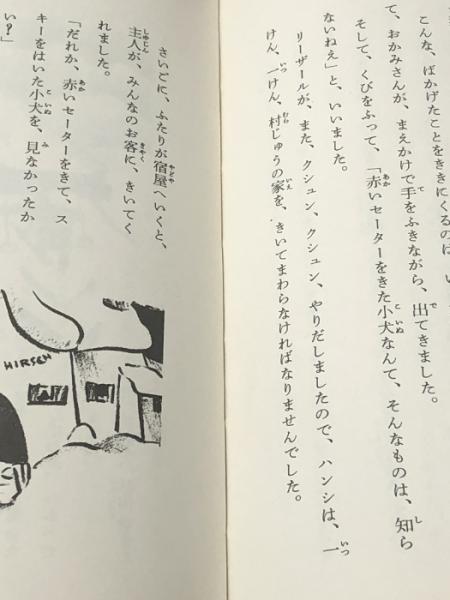 こんな、ばかげたことをききにくるのは、い
て、おかみさんが、まえかけで手をふきながら、出てきました。
そして、くびをふって、「赤いセーターをきた小犬なんて、そんなものは、知ら
ないねえ」と、いいました。
リーザールが、また、クシュン、クシュン、やりだしましたので、ハンシは、一
けん、一けん、村じゅうの家を、きいてまわらなければなりませんでした。
さいごに、ふたりが宿屋へいくと、
主人が、みんなのお客に、きいてく
れました。
「だれか、赤いセーターをきて、ス
キーをはいた小犬を、見なかったか
い？」
HIRSCH